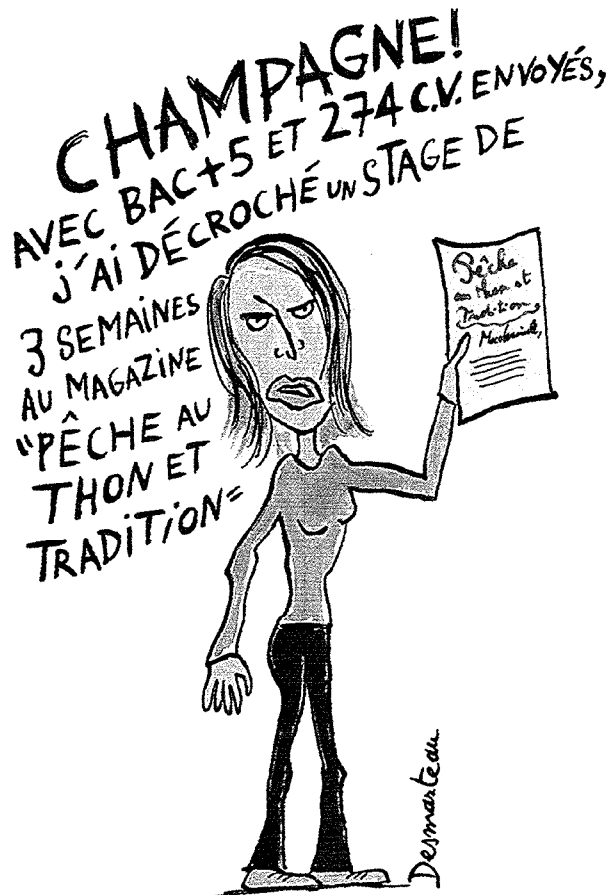 CHAMPAGNE!
AVEC BAC+5 ET 274 C.V. ENVOYÉS,
J'AI DÉCROCHÉ UN STAGE DE
3 SEMAINES
AU MAGAZINE
"PÊCHE AU
THON ET
TRADITION"
Pêche
au thon et
Tradition
Desmarteau